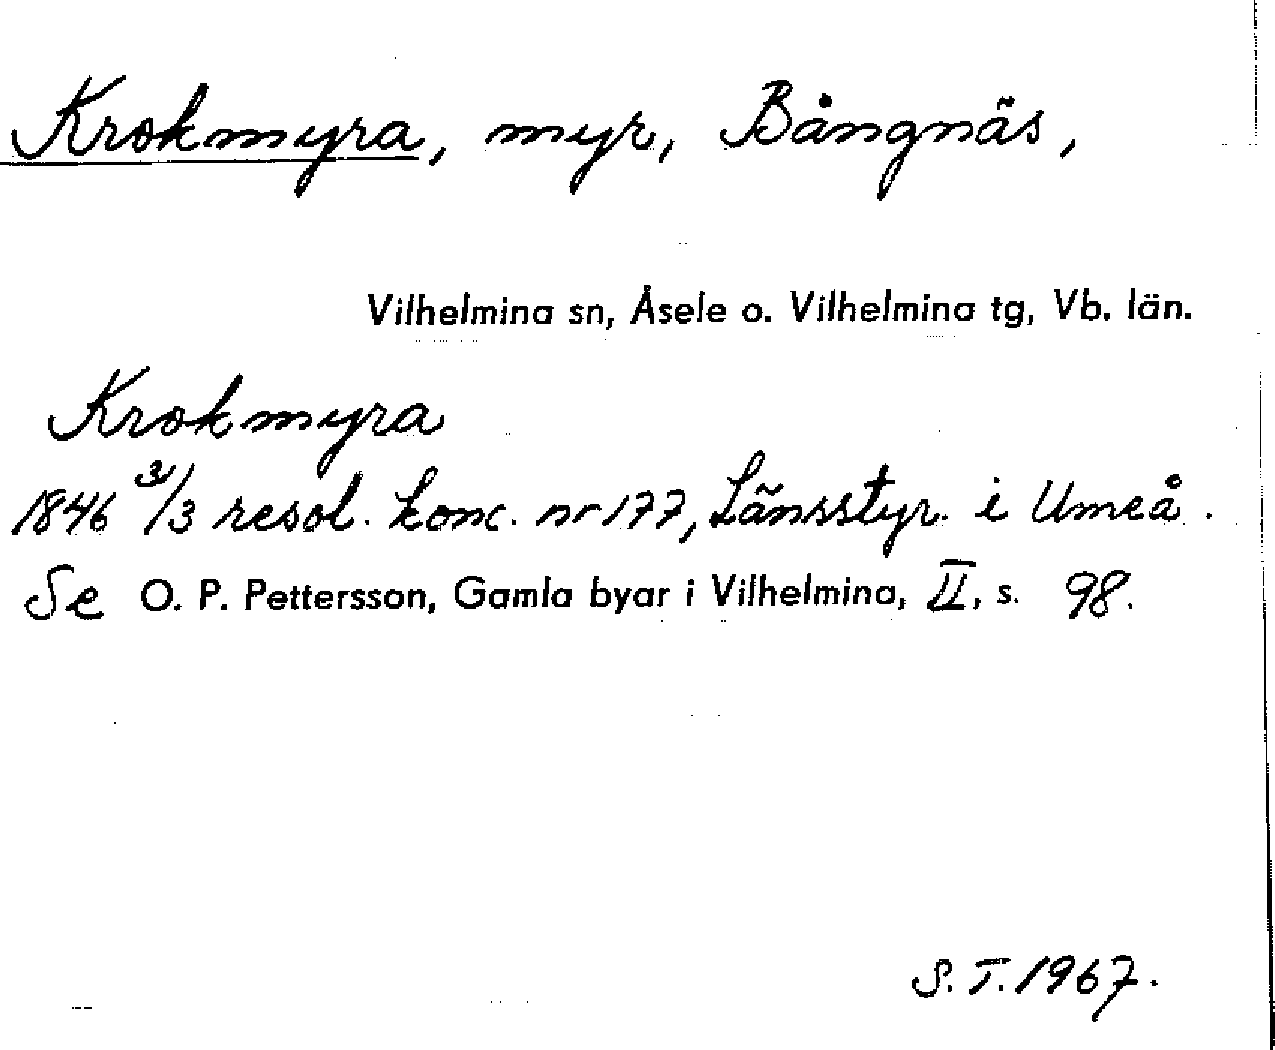 Krokmyra, myr, Bångnäs,
Vilhelmina sn, Åsele o. Vilhelmina tg, Vb. län.
Krokmyra
1846 3/3 resol. konc. nr 177, Länsstyr. i Umeå.
Se O. P. Pettersson, Gamla byar i Vilhelmina, II, s. 98.
S. T. 1967.